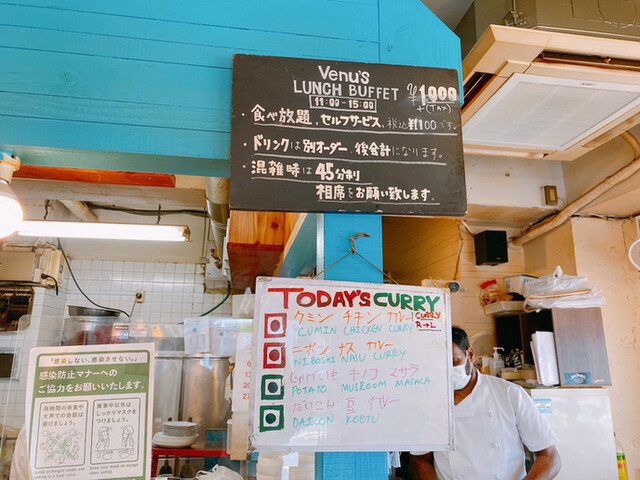 Venu's
LUNCH BUFFET
11:00-15:00
¥1,000
+(TAX)
・食べ放題、セルフサービス、税込¥1,100です。
・ドリンクは別オーダー、後会計になります。
・混雑時は45分制り
相席をお願い致します。
TODAY'S CURRY
クミン チキン カレー
CUMIN CHICKEN CURRY
CURRY
R→L
ニボシ ナス カレー
NIBOSHI NASU CURRY
じゃがいも キノコ マサラ
POTATO MUSROOM MASALA
だいこん 豆 カレー
DAICON KOOTU
「感染しない、感染させない。」
感染防止マナーへの
ご協力をお願いいたします。
長時間の会食や
大声での会話は
避けましょう。
食事中以外は
しっかりマスクを
つけましょう。